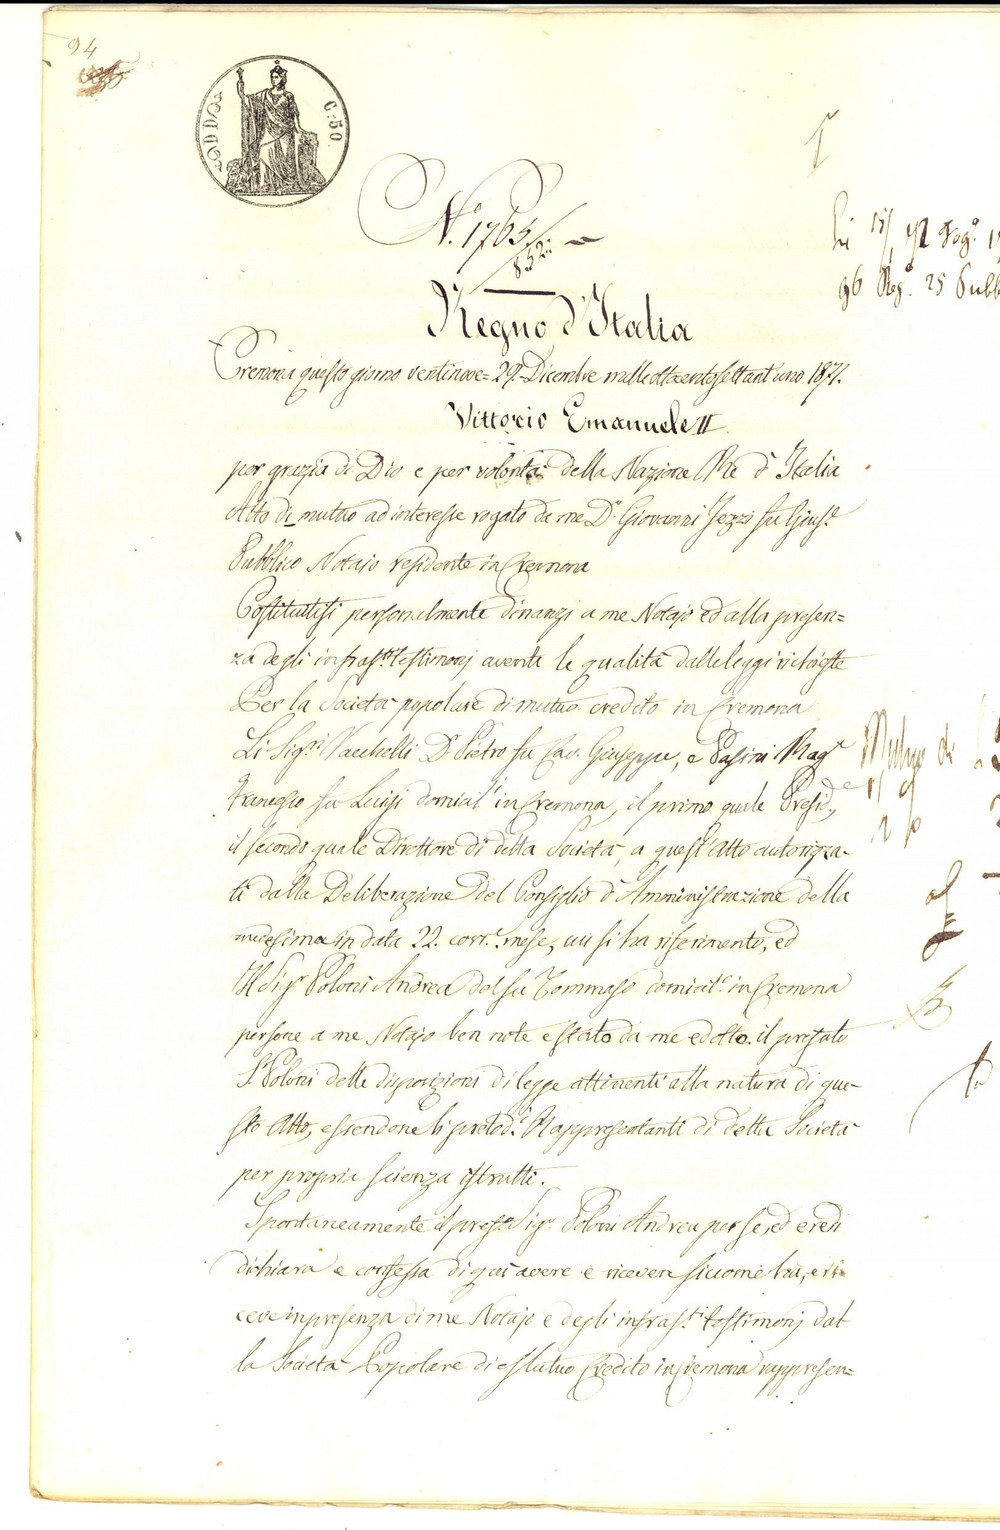 94
C. 50
N.° 1763
832
Regno d'Italia
Cremona questo giorno ventinove = 29. Dicembre milleottocentosettant'uno 1871.
Vittorio Emanuele II
per grazia di Dio e per volontà della Nazione Re d'Italia
Atto di mutuo ad interesse rogato da me D.r Giovanni fu Gius.e
Pubblico Notajo residente in Cremona
Costituitisi personalmente dinanzi a me Notajo ed alla presen=
za degli infrasti testimonj aventi le qualità dalle leggi richieste
Per la Società popolare di mutuo credito in Cremona
Li Sig.ri Vacchelli D.r Pietro fu Cav. Giuseppe, e Pasini Rag.e
fu Luigi domicil.i in Cremona, il primo quale Presid.e,
il secondo quale Direttore di detta Società, a quest'atto autorizza-
ti dalla Deliberazione del Consiglio d'Amministrazione della
medesima in data 22. corr.e mese, cui si ha riferimento, ed
Il Sig.r Poloni Andrea del fu Tommaso domicil.o in Cremona
persone a me Notajo ben note e stato da me edotto il prefato
S.r Poloni delle disposizioni di legge attinenti alla natura di que-
sto Atto, essendone li pretod.i Rappresentanti di detta Società
per propria scienza istrutti.
Spontaneamente il pref.o Sig.r Poloni Andrea per se, ed eredi
dichiara e confessa di quì avere e ricevere siccome ha, e ri
ceve in presenza di me Notajo e degli infras.ti testimonj dal
la Società Popolare di Mutuo Credito in Cremona rappresen=